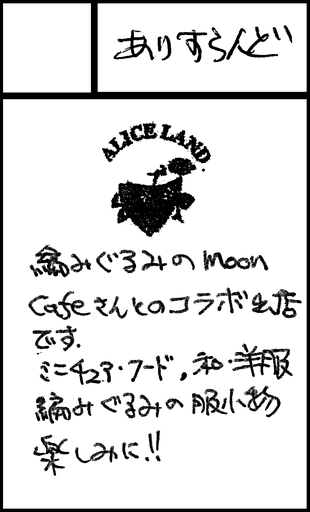 ありすらんど
ALICE LAND
編みぐるみのmoon
Cafeさんとのコラボ出店
です.
ミニチュア・フード,和・洋服
編みぐるみの服小物
楽しみに!!